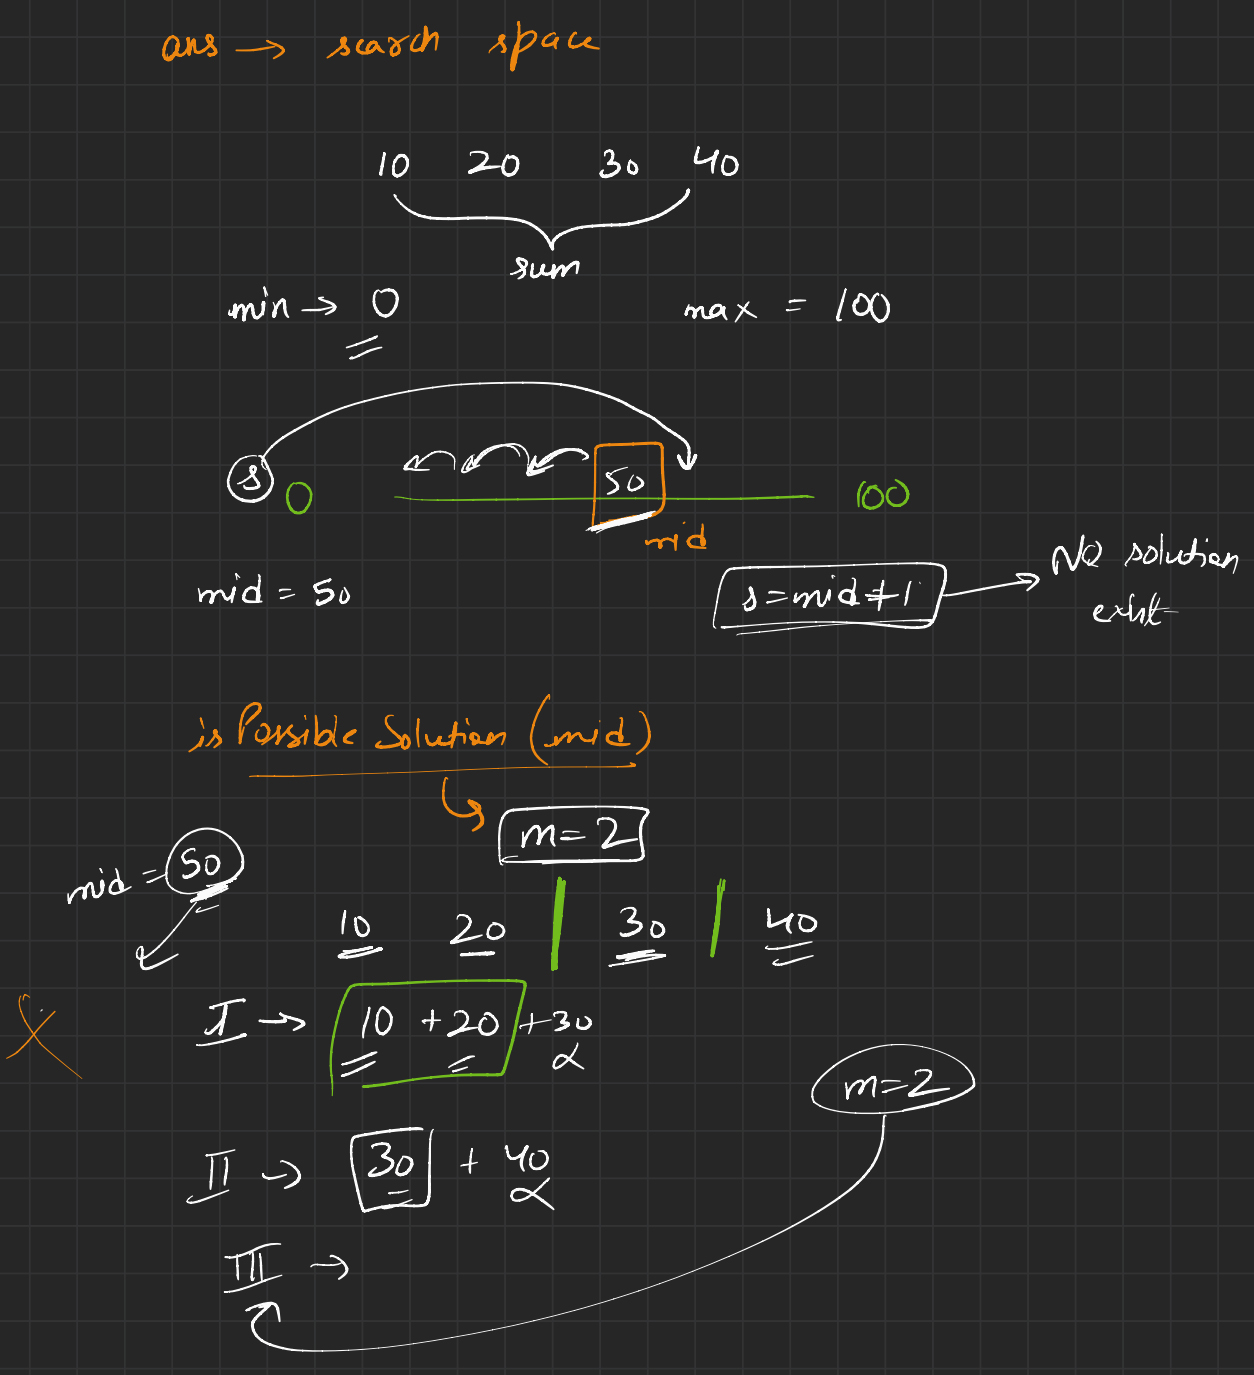 ans → search space
10 20 30 40
sum
min → 0
max = 100
s 0 50 100
mid
mid = 50
s=mid+1 → NO solution
exist
is Possible Solution (mid)
m=2
mid = 50
10 20 | 30 | 40
I → 10 + 20 + 30
m=2
II → 30 + 40
III →